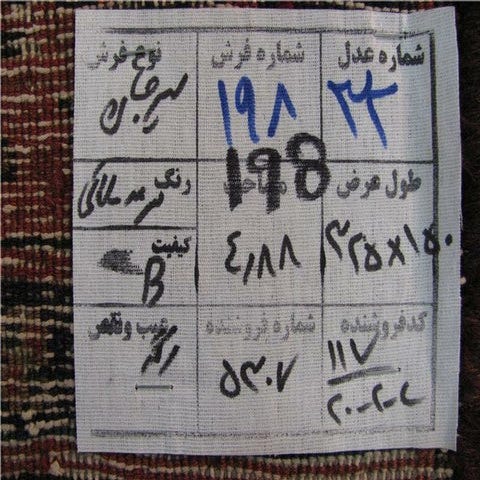 شماره عدل شماره فرش نوع فرش
۳۳ ۱۹۸
198
طول عرض مساحت رنگ
۳۲۵×۱۵۰ ۴٫۸۸
کیفیت
B
کدفروشنده شماره فروشنده عیب ونقص
۱۱۷ ۵۳۰۷
۲۰-۲-۲